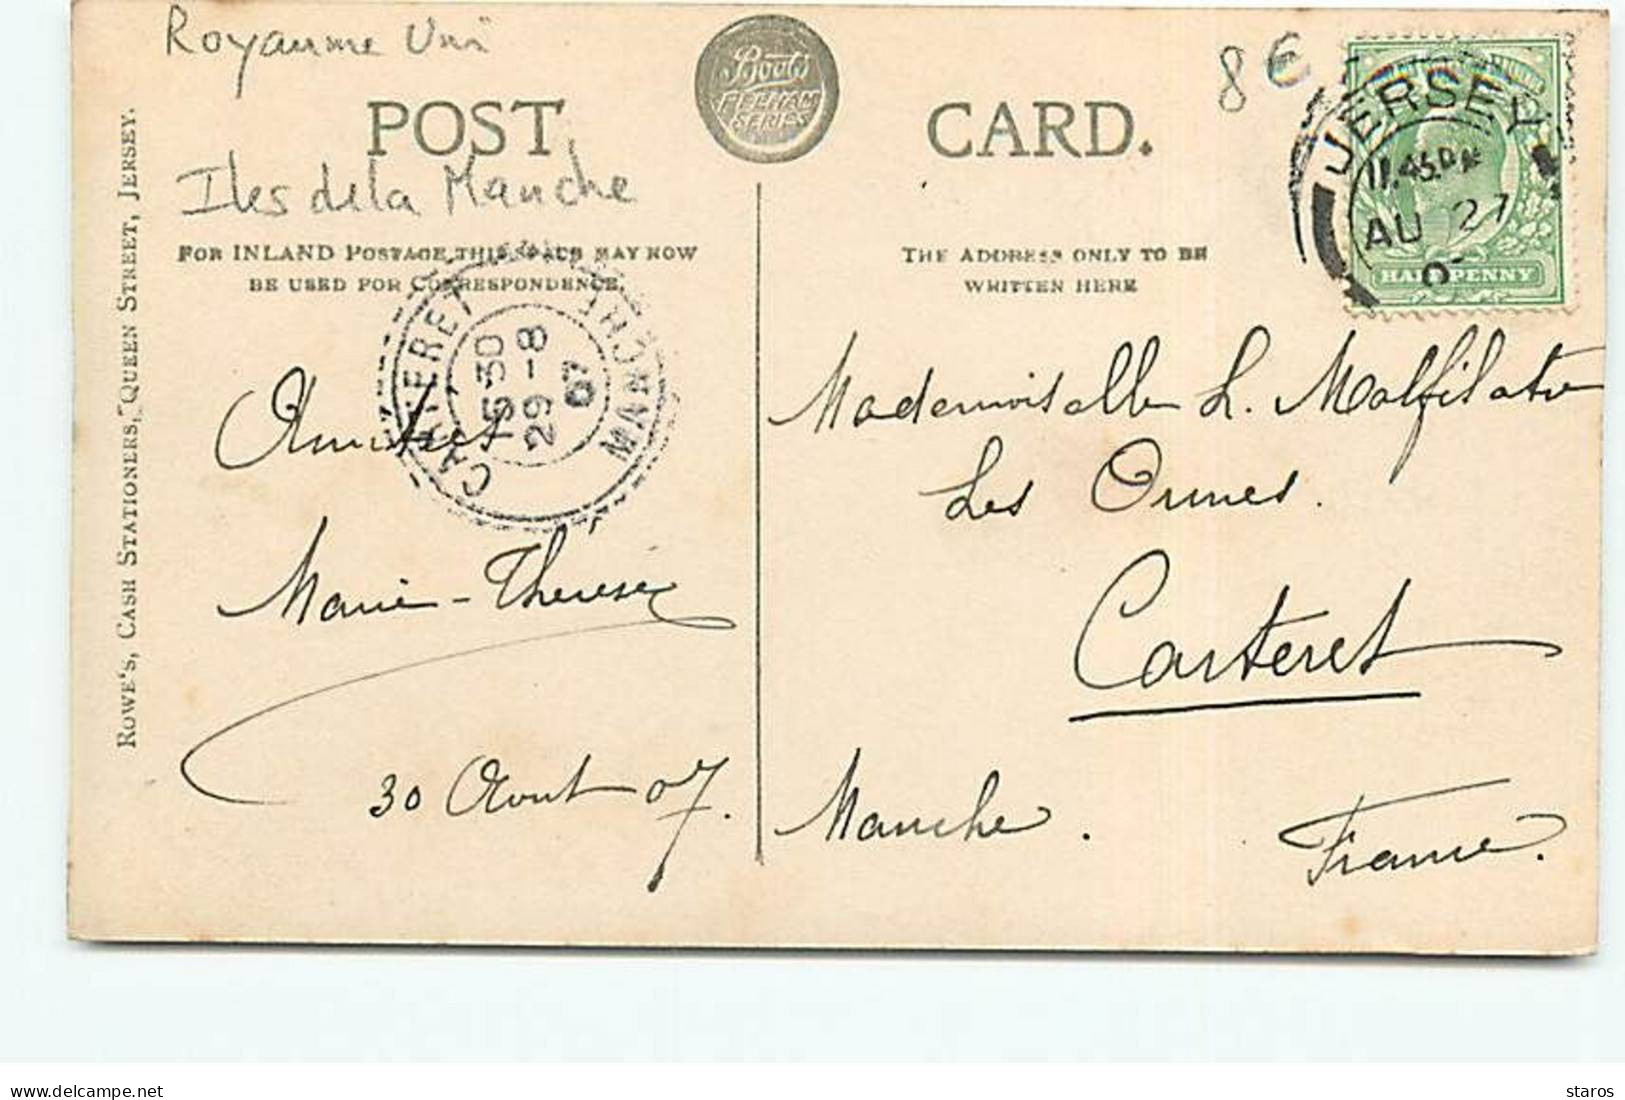 Royaume Uni
8 €
Boots
PELHAM
SERIES
POST CARD.
Iles de la Manche
FOR INLAND POSTAGE THIS SPACE MAY NOW
BE USED FOR CORRESPONDENCE.
THE ADDRESS ONLY TO BE
WRITTEN HERE
JERSEY
11.45 PM
AU 27
HALFPENNY
CARTERET MANCHE
15-30
29-8
07
Amitiés
Marie-Thérèse
30 Aout 07.
Mademoiselle L. Malfilatre
Les Ormes.
Carteret
Manche.
France.
ROWE'S, CASH STATIONERS, QUEEN STREET, JERSEY.
delcampe.net
staros